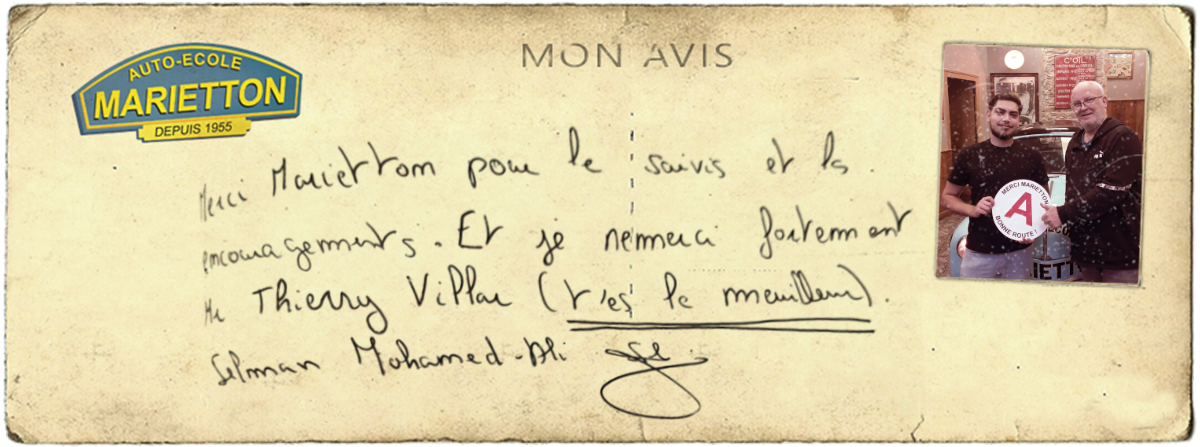 MON AVIS
AUTO-ECOLE
MARIETTON
DEPUIS 1955
Merci Marietton pour le suivis et ls
encouragements. Et je remerci fortemment
Mr Thierry Villar (t'es le meuilleur).
Selman Mohamed-Ali
MERCI MARIETTON
A
BONNE ROUTE !